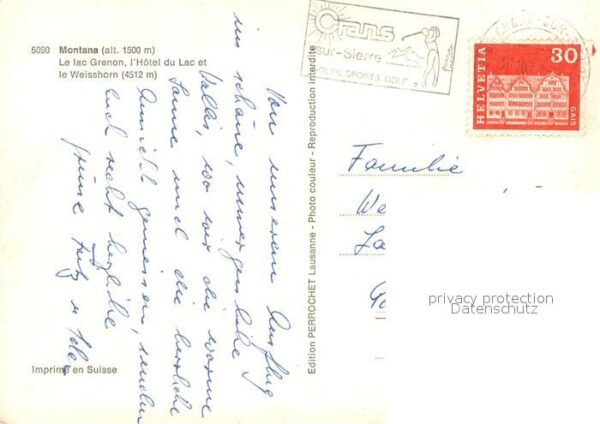 5090 Montana (alt. 1500 m)
Le lac Grenon, l'Hôtel du Lac et
le Weisshorn (4512 m)
Von unserem Ausflug
ins schöne, unvergessliche
Wallis, wo wir die warme
Sonne und die herrliche
Aussicht geniessen, senden
euch recht herzliche
Grüsse Fritz u
Imprimé en Suisse
Edition PERROCHET Lausanne - Photo couleur - Reproduction interdite
Crans
sur-Sierre
SOLEIL SPORTS GOLF
CRANS-SUR-
HELVETIA
30
GAIS
Familie
privacy protection
Datenschutz